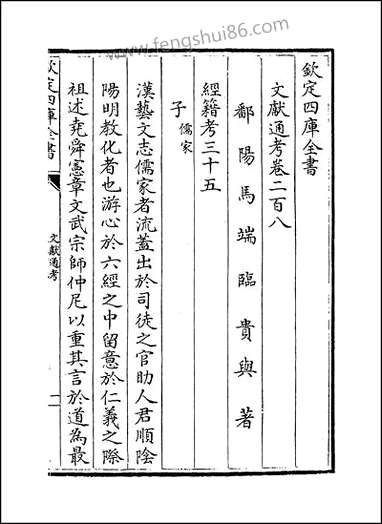 www.fengshui86.com
欽定四庫全書
文獻通考卷二百八
鄱陽馬端臨貴與著
經籍考三十五
子儒家
漢藝文志儒家者流蓋出於司徒之官助人君順陰
陽明教化者也游心於六經之中留意於仁義之際
祖述堯舜憲章文武宗師仲尼以重其言於道為最
欽定四庫全書
文獻通考
一